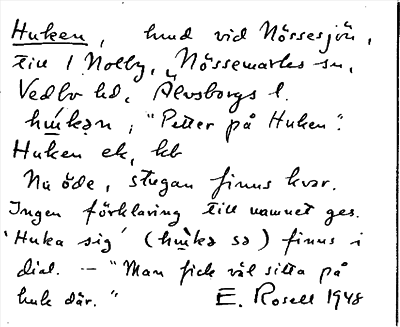 Huken, hmd vid Nössesjön,
till 1 Nolby, Nössemarks sn,
Vedbo hd, Älvsborgs l.
hɯ̀kən; "Petter på Huken".
Huken ek, kb
Nu öde, stugan finns kvar.
Ingen förklaring till namnet ges.
'Huka sig' (hɯ̀kə sə) finns i
dial. — "Man fick väl sitta på
huk där." E. Rosell 1948